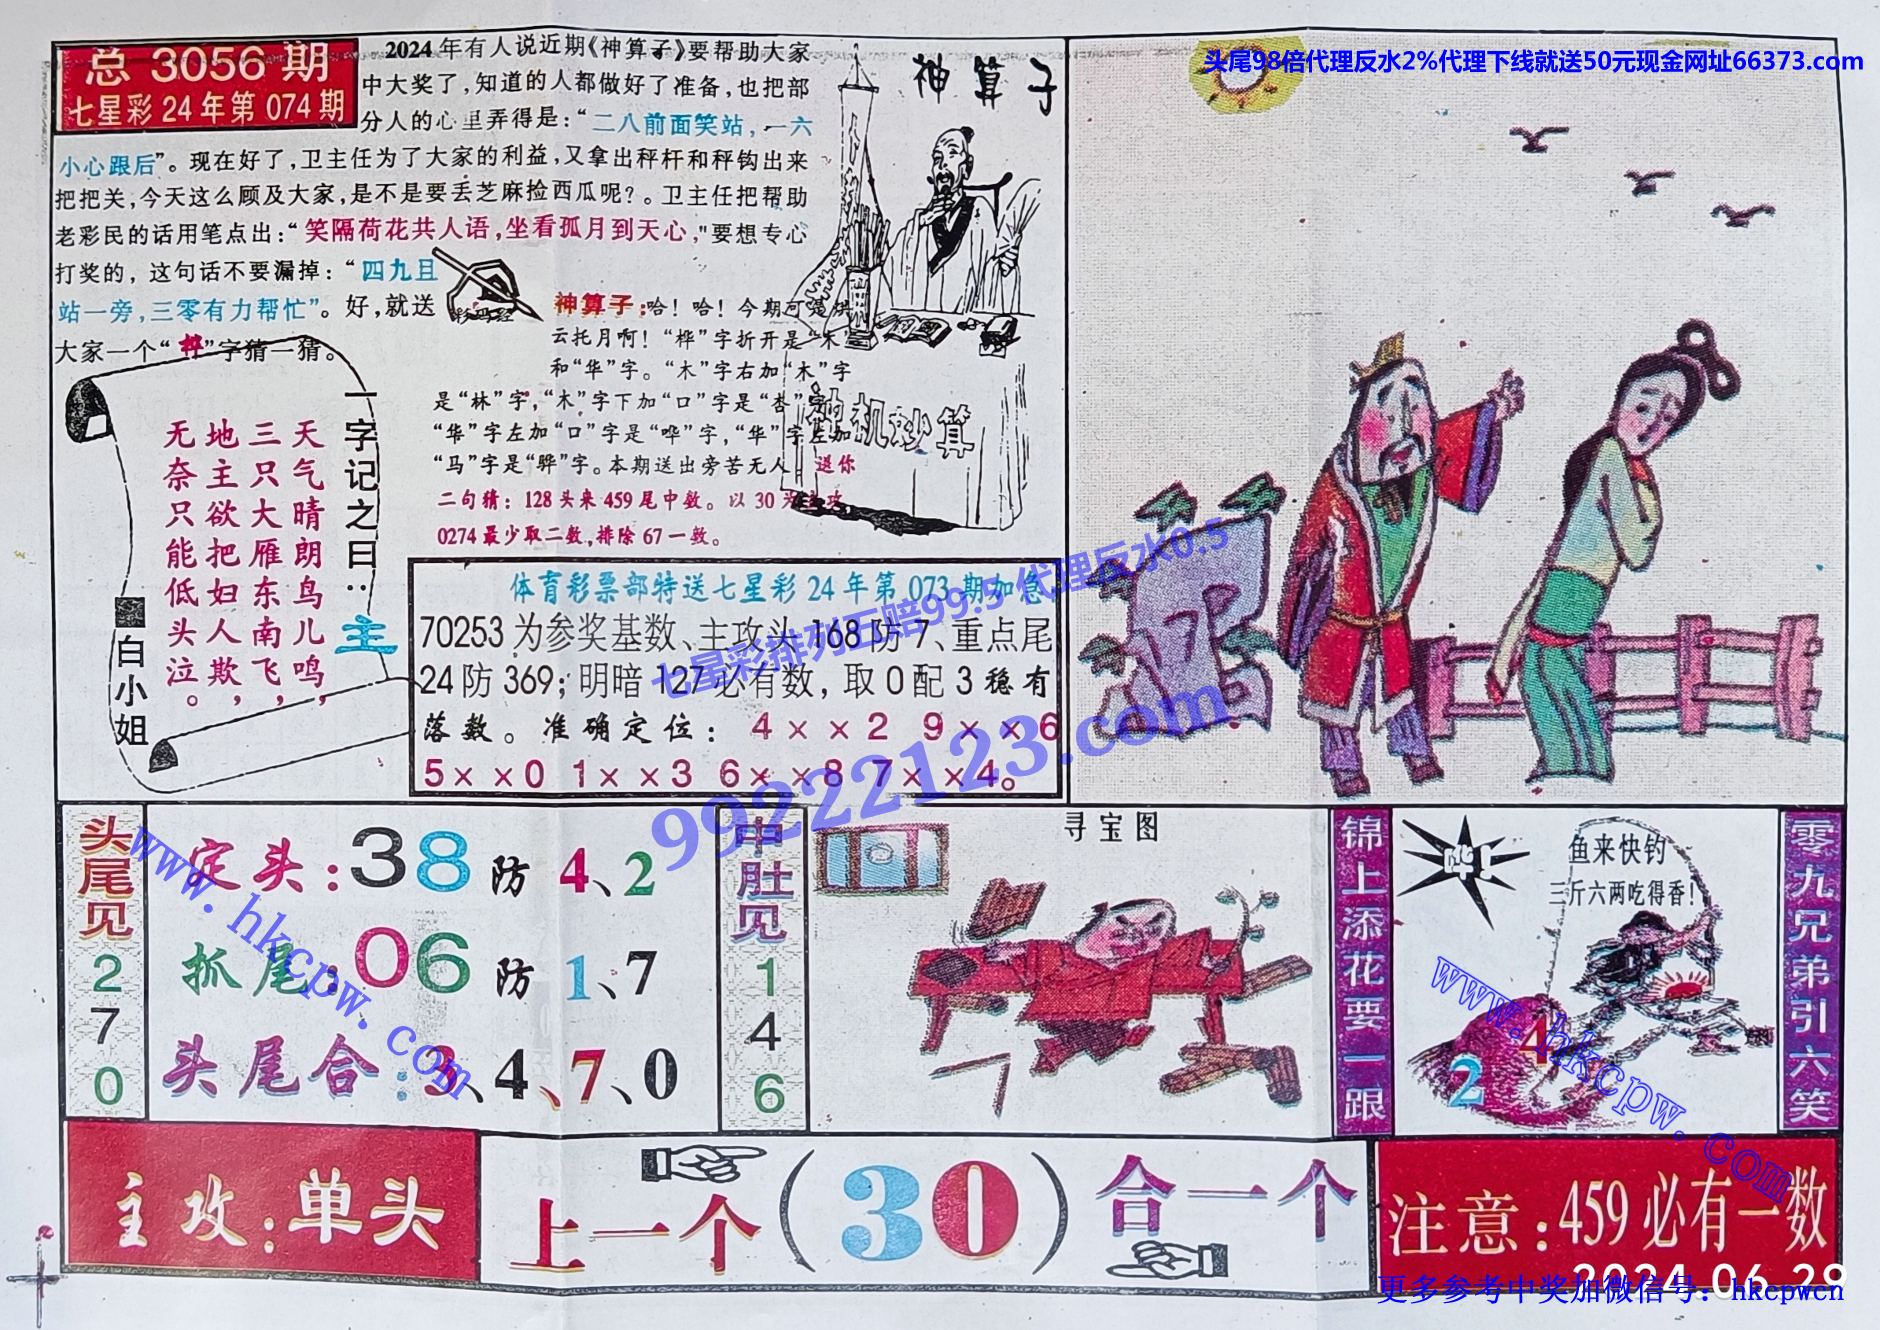 头尾98倍代理反水2%代理下线就送50元现金网址66373.com
总 3056 期
七星彩 24 年第 074 期
2024 年有人说近期《神算子》要帮助大家
中大奖了,知道的人都做好了准备,也把部
分人的心里弄得是:“二八前面笑站,一六
小心跟后”。现在好了,卫主任为了大家的利益,又拿出秤杆和秤钩出来
把把关,今天这么顾及大家,是不是要丢芝麻捡西瓜呢?。卫主任把帮助
老彩民的话用笔点出:“笑隔荷花共人语,坐看孤月到天心,"要想专心
打奖的, 这句话不要漏掉:“四九且
站一旁,三零有力帮忙”。好,就送
大家一个“桦”字猜一猜。
神算子
神机妙算
神算子:哈!哈!今期可是烘
云托月啊!“桦”字折开是“木”
和“华”字。“木”字右加“木”字
是“林”字,“木”字下加“口”字是“杏”字,
“华”字左加“口”字是“哗”字,“华”字左加
“马”字是“骅”字。本期送出旁苦无人。送你
二句猜:128 头来 459 尾中数。以 30 为主攻,
0274 最少取二数,排除 67 一数。
一字记之曰:主
天气晴朗鸟儿鸣,
三只大雁东南飞,
地主欲把妇人欺,
无奈只能低头泣。
白小姐
体育彩票部特送七星彩 24 年第 073 期加急
70253 为参奖基数、主攻头 168 防 7、重点尾
24 防 369; 明暗 127 必有数, 取 0 配 3 稳有
落数。准确定位: 4××2 9××6
5××0 1××3 6××8 7××4。
七星彩排列五赔99.5 代理反水0.5
99222123.com
头尾见270
定头:38 防 4、2
抓尾:06 防 1、7
头尾合:3、4、7、0
www.hkcpw.com
中肚见146
寻宝图
锦上添花要一跟
鱼来快钓
三斤六两吃得香!
4
2
www.hkcpw.com
零九兄弟引六笑
主攻:单头
上一个(30)合一个
注意:459 必有一数
2024.06.29
更多参考中奖加微信号: hkcpwcn